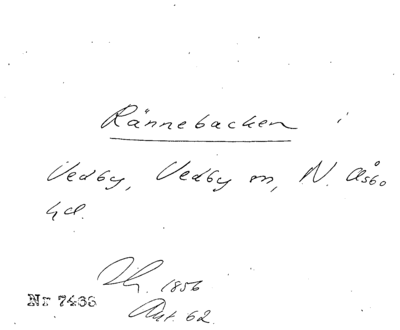 Rännebacken i
Vedby, Vedby sn, N. Åsbo
hd.
1856
Nr 7436
Ant. 62